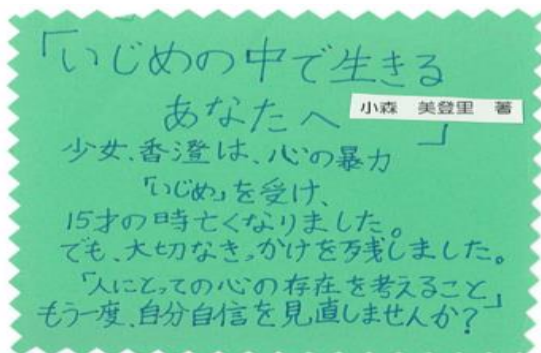 「いじめの中で生きる
あなたへ」
小森 美登里 著
少女、香澄は、心の暴力
「いじめ」を受け、
15才の時亡くなりました。
でも、大切なきっかけを残しました。
「人にとっての心の存在を考えること」
もう一度、自分自信を見直しませんか?